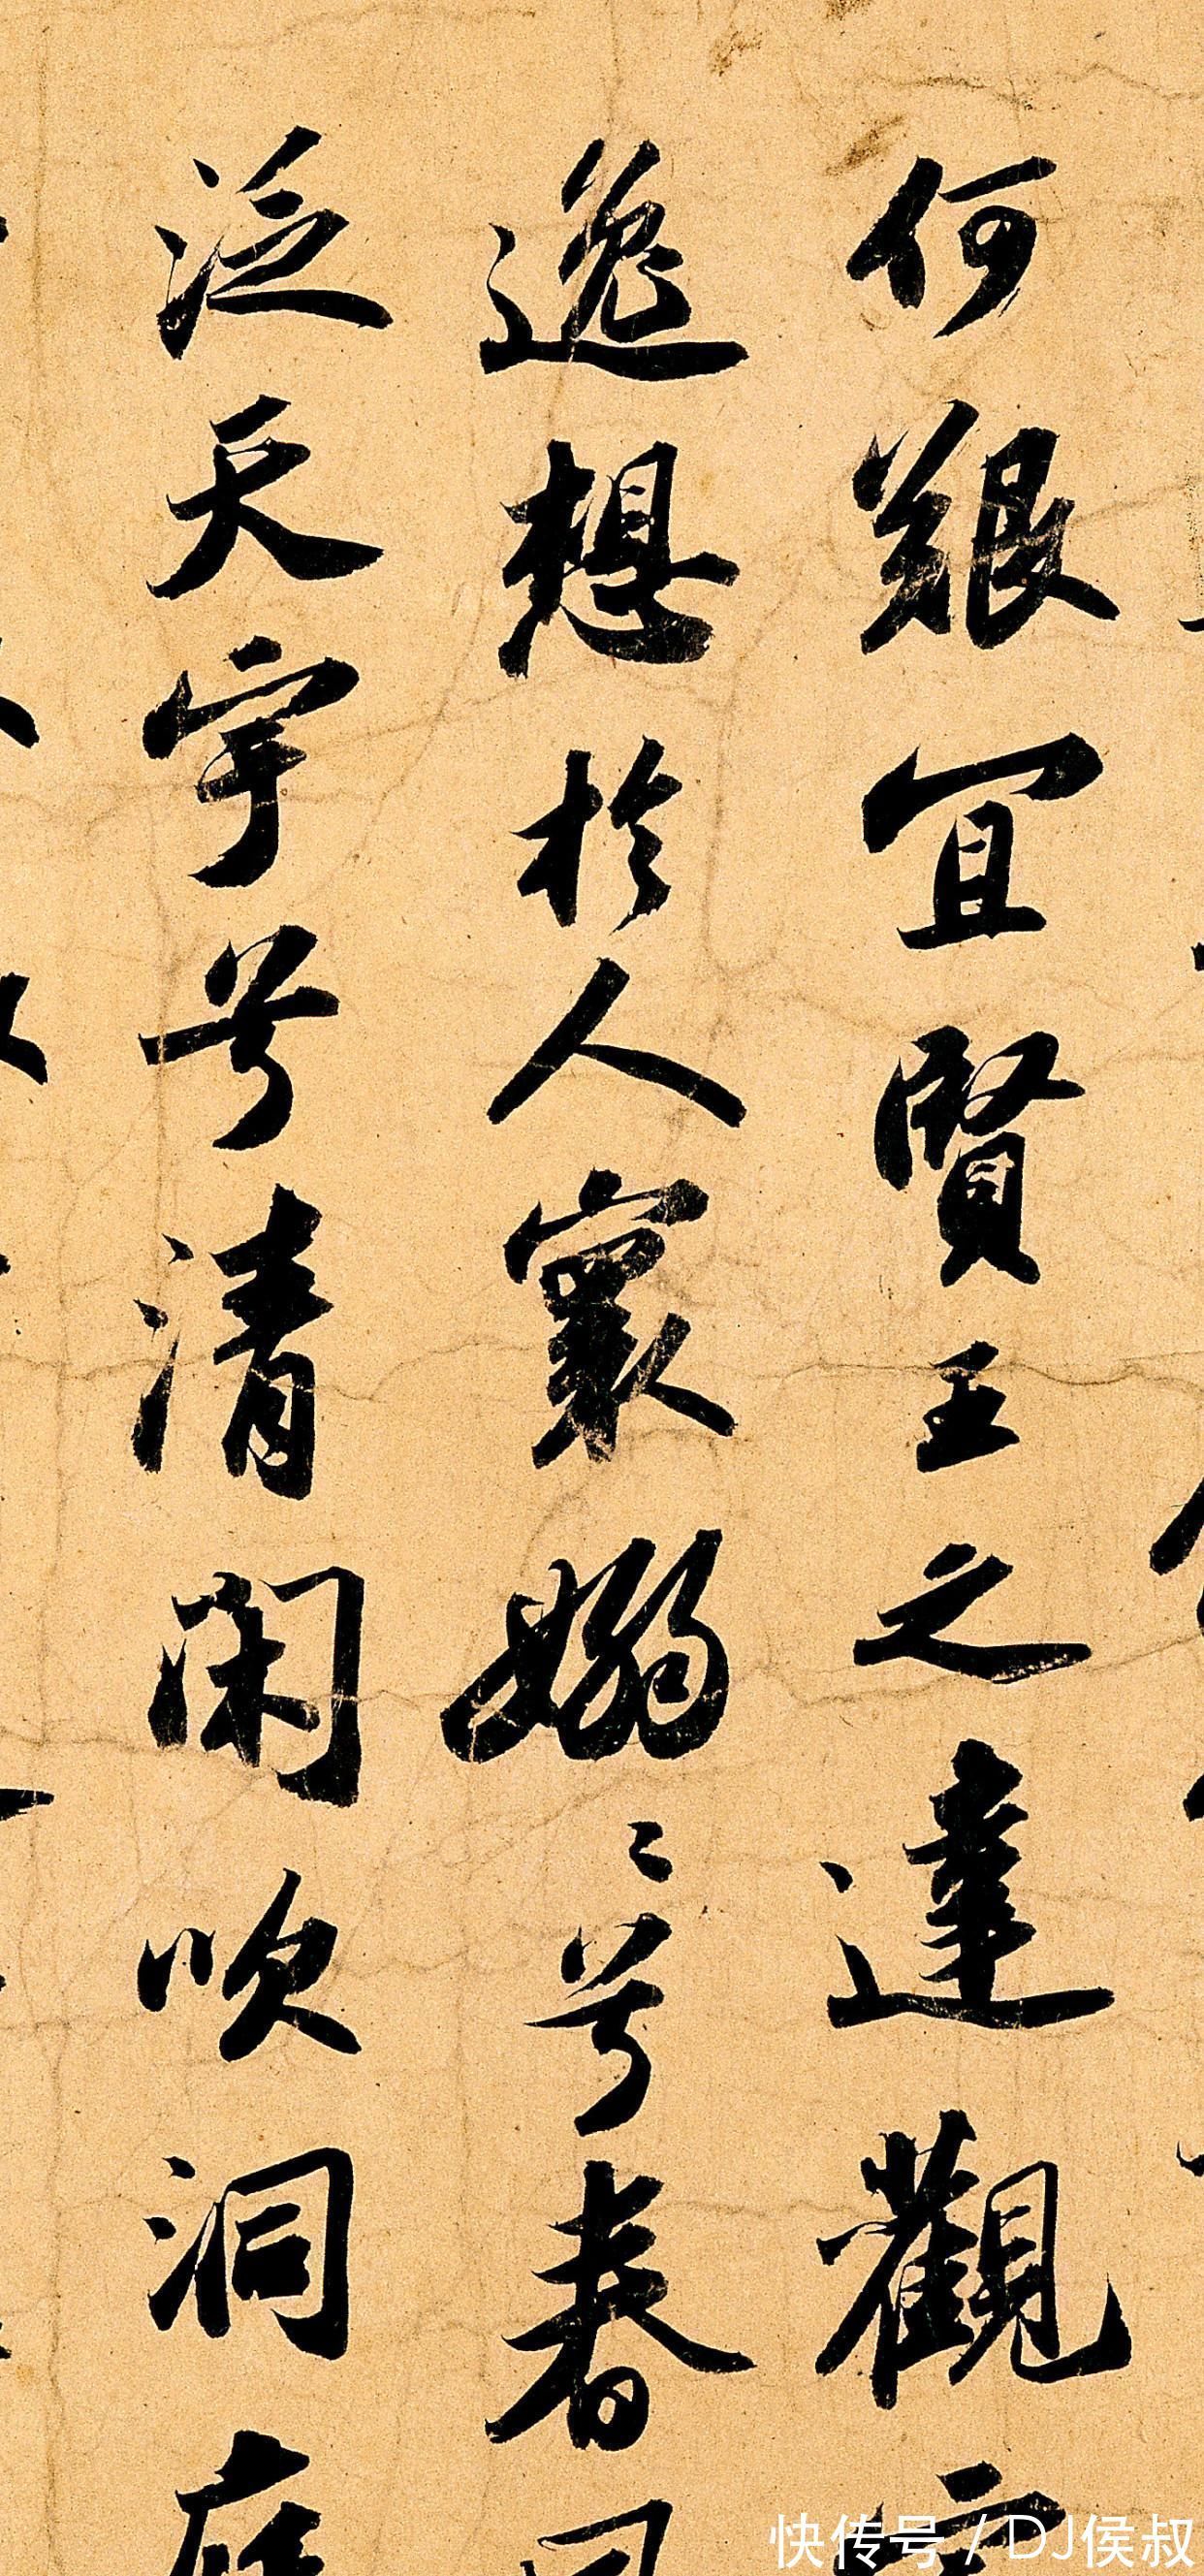 何艱宜賢王之達觀
逸想於人寰嫋〻兮春
泛天宇兮清閑吹洞庭
快传号 / DJ侯叔